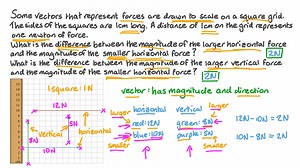 Some vectors that represent forces are drawn to scale on a square grid.
The sides of the squares are 1cm long. A distance of 1cm on the grid represents
one newton of force.
What is the difference between the magnitude of the larger horizontal force
and the magnitude of the smaller horizontal force? 2N
What is the difference between the magnitude of the larger vertical force
and the magnitude of the smaller vertical force? 2N
1square:1N
vector: has magnitude and direction
12N
larger horizontal vertical larger
red:12N green:8N 12N-10N=2N
8N vertical horizontal
blue:10N purple:5N 10N-8N=2N
10N
smaller smaller